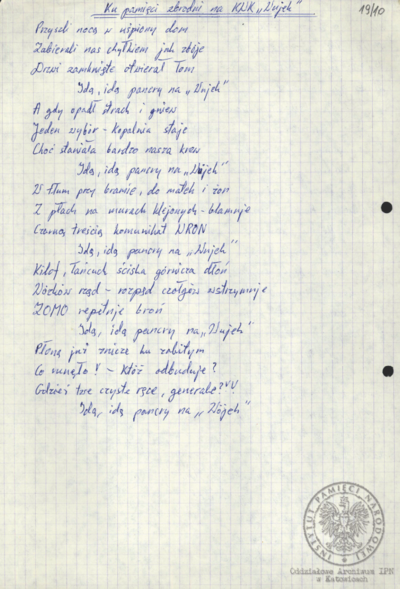 Ku pamięci zbrodni na KWK „Wujek"
19/10
Przyszli nocą w uśpiony dom
Zabierali nas chyłkiem jak zbóje
Drzwi zamknięte otwierał łom
Idą, idą pancry na „Wujek"
A gdy opadł strach i gniew
Jeden wybór - kopalnia staje
Choć staniała bardzo nasza krew
Idą, idą pancry na „Wujek"
tłum przy bramie, do matek i żon
Z płacht na murach klejonych -
Czarną treścią komunikat WRON
Idą, idą pancry na „Wujek"
Kilof, łańcuch ściska górnicza dłoń
Wózków rząd - rozpęd czołgów wstrzymuje
ZOMO repetuje broń
Idą, idą pancry na „Wujek"
Płoną już znicze ku zabitym
Co runęło!! - Któż odbuduje?
Gdzieś twe czyste ręce, generale?!!
Idą, idą pancry na „Wójek"
INSTYTUT PAMIĘCI NARODOWEJ
Oddziałowe Archiwum IPN
w Katowicach